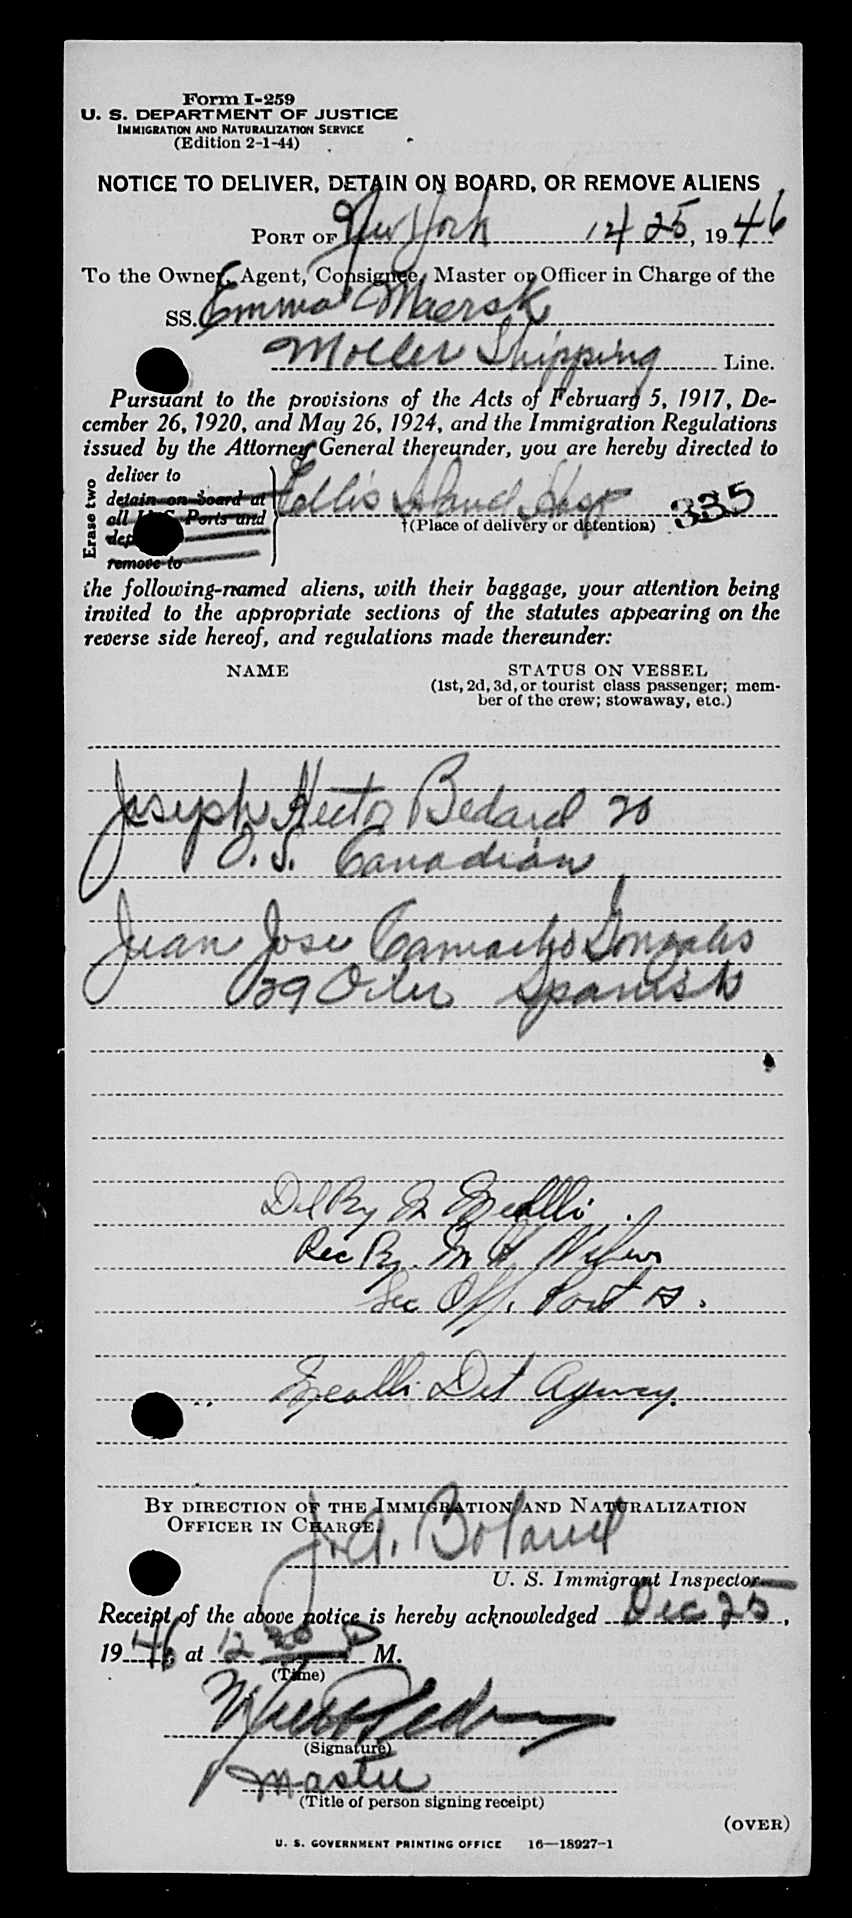 Form I-259
U. S. DEPARTMENT OF JUSTICE
IMMIGRATION AND NATURALIZATION SERVICE
(Edition 2-1-44)
NOTICE TO DELIVER, DETAIN ON BOARD, OR REMOVE ALIENS
PORT OF New York 12/25, 1946
To the Owner, Agent, Consignee, Master or Officer in Charge of the
SS. Emma Maersk
Moller Shipping Line.
Pursuant to the provisions of the Acts of February 5, 1917, De-
cember 26, 1920, and May 26, 1924, and the Immigration Regulations
issued by the Attorney General thereunder, you are hereby directed to
Erase two
deliver to
detain on board at
all U. S. Ports and
remove to
Ellis Island Hosp
†(Place of delivery or detention) 335
the following-named aliens, with their baggage, your attention being
invited to the appropriate sections of the statutes appearing on the
reverse side hereof, and regulations made thereunder:
NAME STATUS ON VESSEL
(1st, 2d, 3d, or tourist class passenger; mem-
ber of the crew; stowaway, etc.)
Joseph Hector Bedard 20
O.S. Canadian
Juan Jose Camacho Gonzales
29 Oiler Spanish
Del By
Rec By. M H
Sec Off.
Det Agency.
BY DIRECTION OF THE IMMIGRATION AND NATURALIZATION
OFFICER IN CHARGE.
J. A. Boland
U. S. Immigrant Inspector
Receipt of the above notice is hereby acknowledged Dec 25,
1946, at 12 30 P M.
(Time)
(Signature)
Master
(Title of person signing receipt)
(OVER)
U. S. GOVERNMENT PRINTING OFFICE 16—18927-1